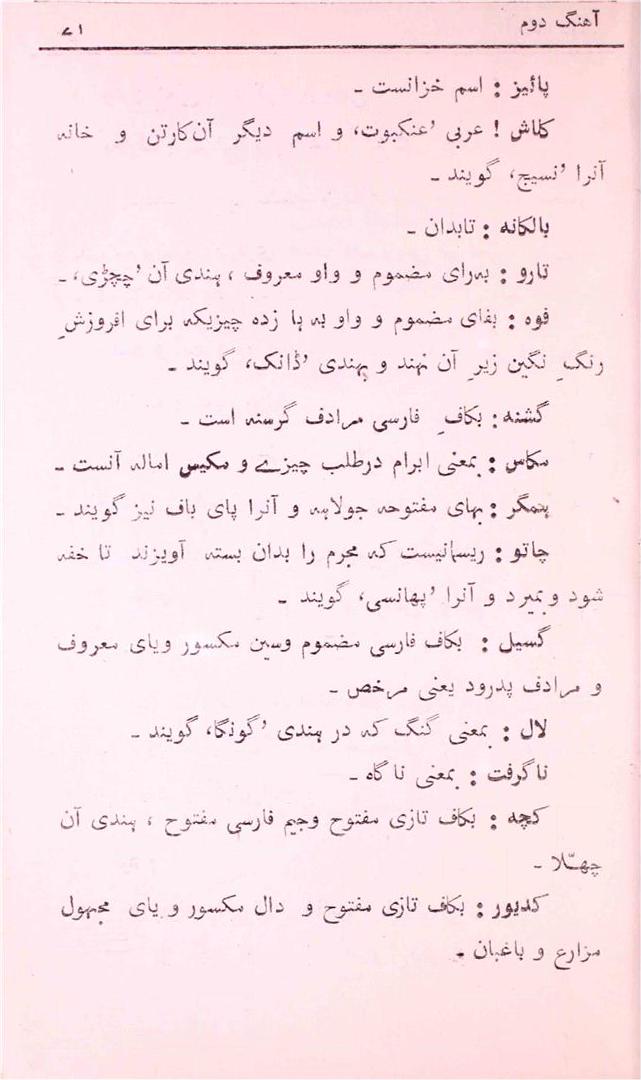 آهنگ دوم
۷۱
پائیز : اسم خزانست ۔
کلاش ! عربی ’عنکبوت‘ و اسم دیگر آن‌کارتن و خانہ
آنرا ’نسیج‘ گویند ۔
بالکانہ : تابدان ۔
تارو : بہ‌رای مضموم و واو معروف ، ہندی آن ’چچڑی‘ ۔
فوہ : بفای مضموم و واو بہ ہا زدہ چیزیکہ برای افروزشِ
رنگِ نگین زیرِ آن نہند و بہندی ’ڈانک‘ گویند ۔
گشنہ : بکافِ فارسی مرادف گرسنہ است ۔
مکاس : بمعنی ابرام درطلب چیزے و مکیس امالہ آنست ۔
ہمگر : بہای مفتوحہ جولاہہ و آنرا پای باف نیز گویند ۔
چاتو : ریسمانیست کہ مجرم را بدان بستہ آویزند تا خفہ
شود و بمیرد و آنرا ’پھانسی‘ گویند ۔
گسیل : بکاف فارسی مضموم وسین مکسور ویای معروف
و مرادف پدرود یعنی مرخص ۔
لال : بمعنی گنگ کہ در ہندی ’گونگا‘ گویند ۔
ناگرفت : بمعنی ناگاہ ۔
کچہ : بکاف تازی مفتوح وجیم فارسی مفتوح ، ہندی آن
چھلّا ۔
کدیور : بکاف تازی مفتوح و دال مکسور و یای مجہول
مزارع و باغبان ۔